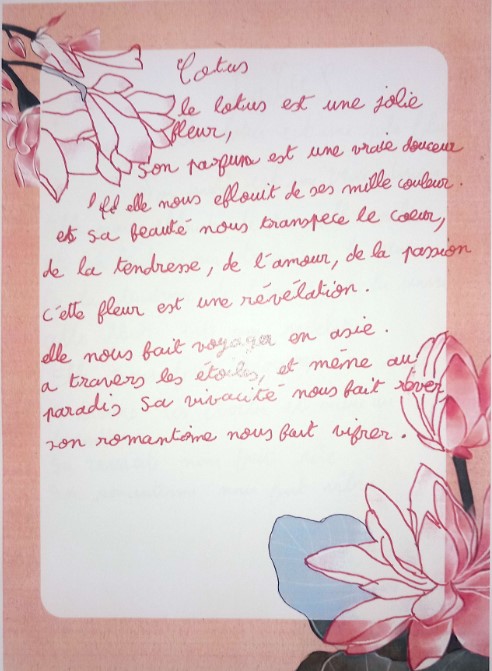 Lotus
le lotus est une jolie
fleur,
son parfum est une vraie douceur
elle nous eblouit de ses mille couleur.
et sa beauté nous transpece le coeur,
de la tendresse, de l'amour, de la passion
c'ette fleur est une révélation.
elle nous fait voyager en asie.
a travers les étoiles, et même au
paradis sa vivacité nous fait rêver
son romantisme nous fait vibrer.